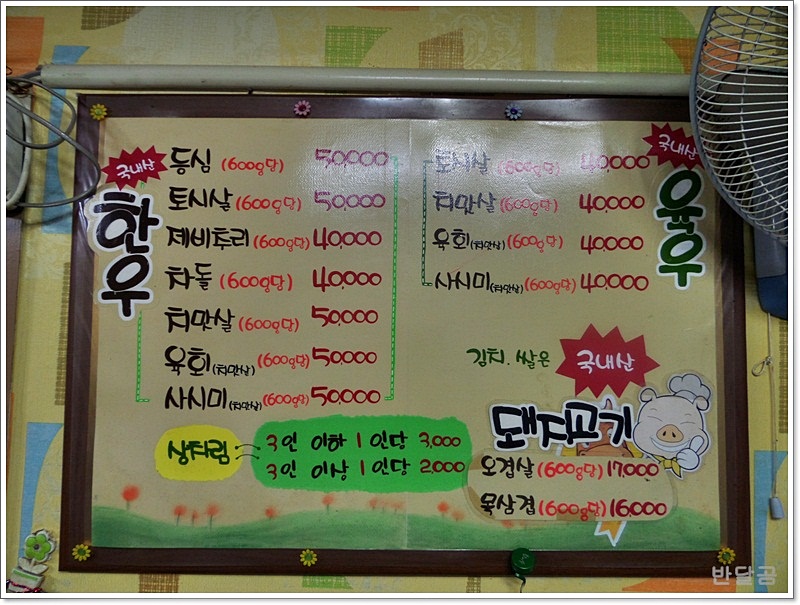 국내산
한우
등심 (600g당) 50,000
토시살 (600g당) 50,000
제비추리 (600g당) 40,000
차돌 (600g당) 40,000
치맛살 (600g당) 50,000
육회(치맛살) (600g당) 50,000
사시미(치맛살) (600g당) 50,000
국내산
육우
토시살 (600g당) 40,000
치맛살 (600g당) 40,000
육회(치맛살) (600g당) 40,000
사시미(치맛살) (600g당) 40,000
김치. 쌀은 국내산
상차림
3인 이하 1인당 3,000
3인 이상 1인당 2,000
돼지고기
오겹살 (600g당) 17,000
목삼겹 (600g당) 16,000
반달곰